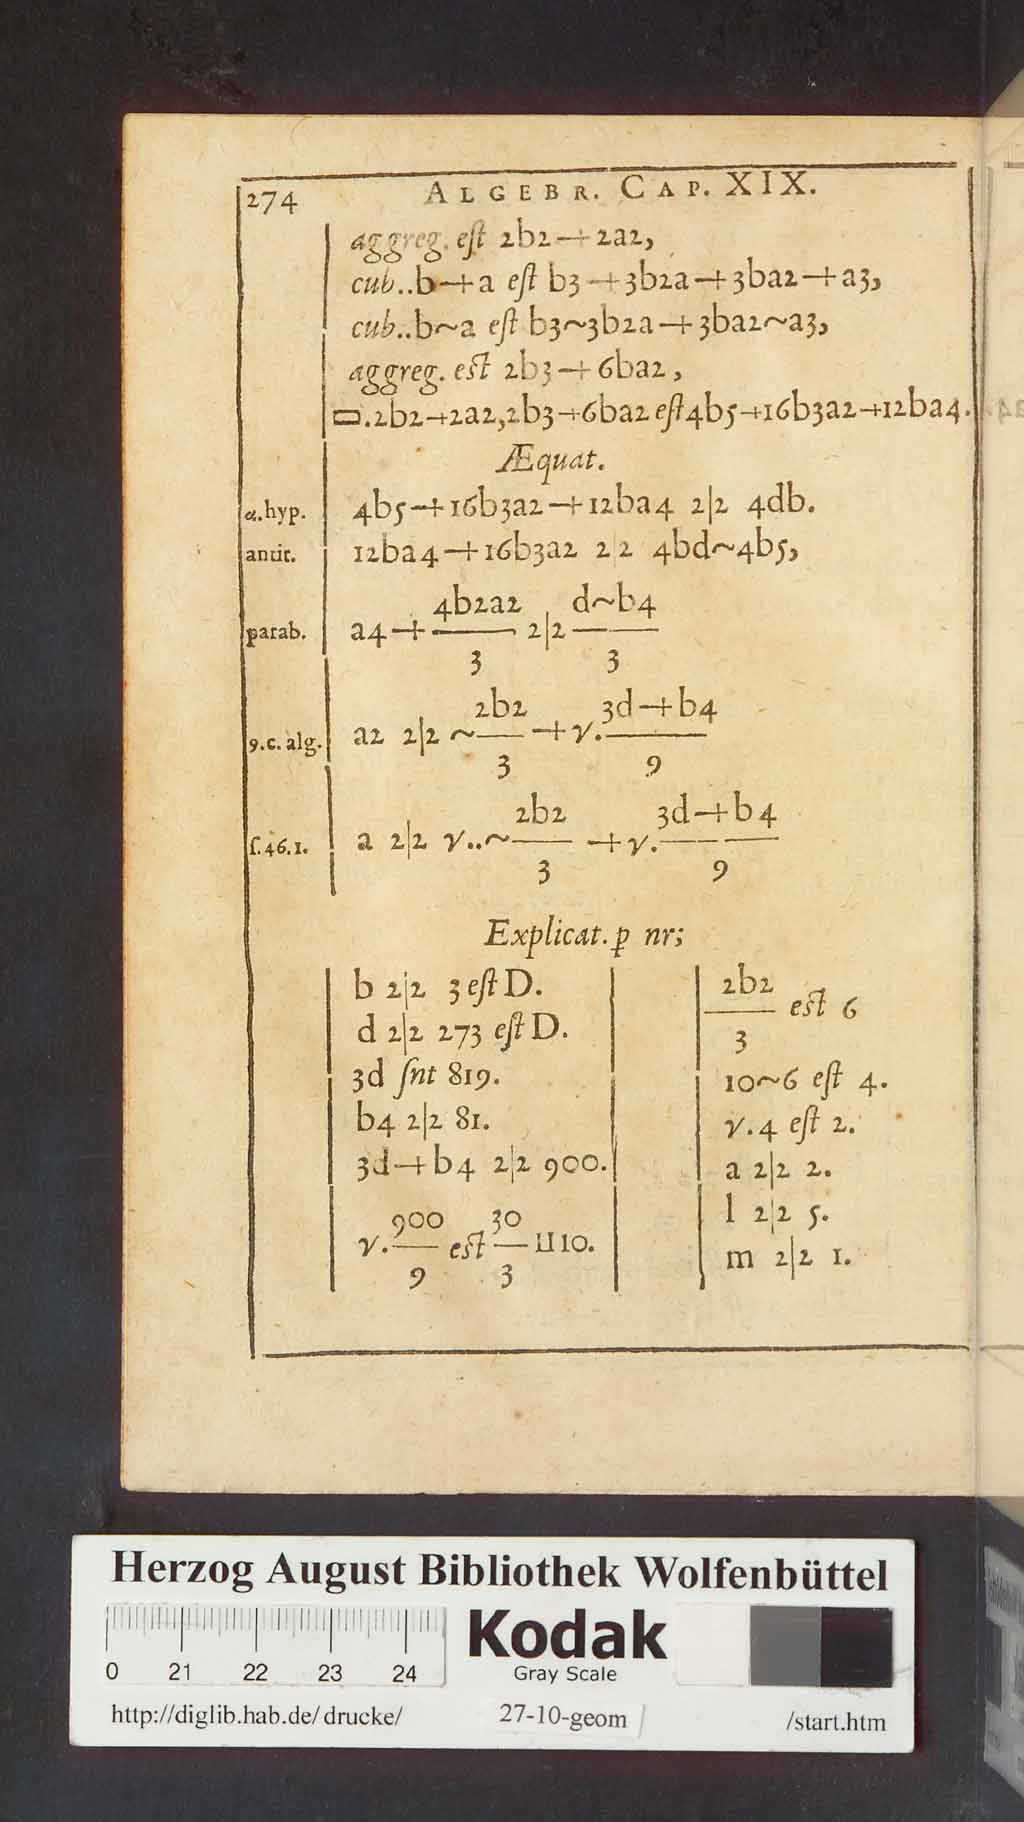 274 ALGEBR. CAP. XIX.
aggreg. est 2b2+2a2,
cub..b+a est b3+3b2a+3ba2+a3,
cub..b~a est b3~3b2a+3ba2~a3,
aggreg. est 2b3+6ba2,
▭.2b2+2a2,2b3+6ba2 est 4b5+16b3a2+12ba4.
Æquat.
α.hyp. 4b5+16b3a2+12ba4 2|2 4db.
antit. 12ba4+16b3a2 2|2 4bd~4b5,
4b2a2 d~b4
parab. a4+—— 2|2 ——
3 3
2b2 3d+b4
9.c.alg. a2 2|2 ~—— +γ.——
3 9
2b2 3d+b4
ſ.46.1. a 2|2 γ..~—— +γ.——
3 9
Explicat. ꝑ nr;
b 2|2 3 est D.
d 2|2 273 est D.
3d ſnt 819.
b4 2|2 81.
3d+b4 2|2 900.
900 30
γ.—— est —— ꓕꓕ 10.
9 3
2b2
—— est 6
3
10~6 est 4.
γ.4 est 2.
a 2|2 2.
l 2|2 5.
m 2|2 1.
Herzog August Bibliothek Wolfenbüttel
Kodak
Gray Scale
0 21 22 23 24
http://diglib.hab.de/drucke/ 27-10-geom /start.htm